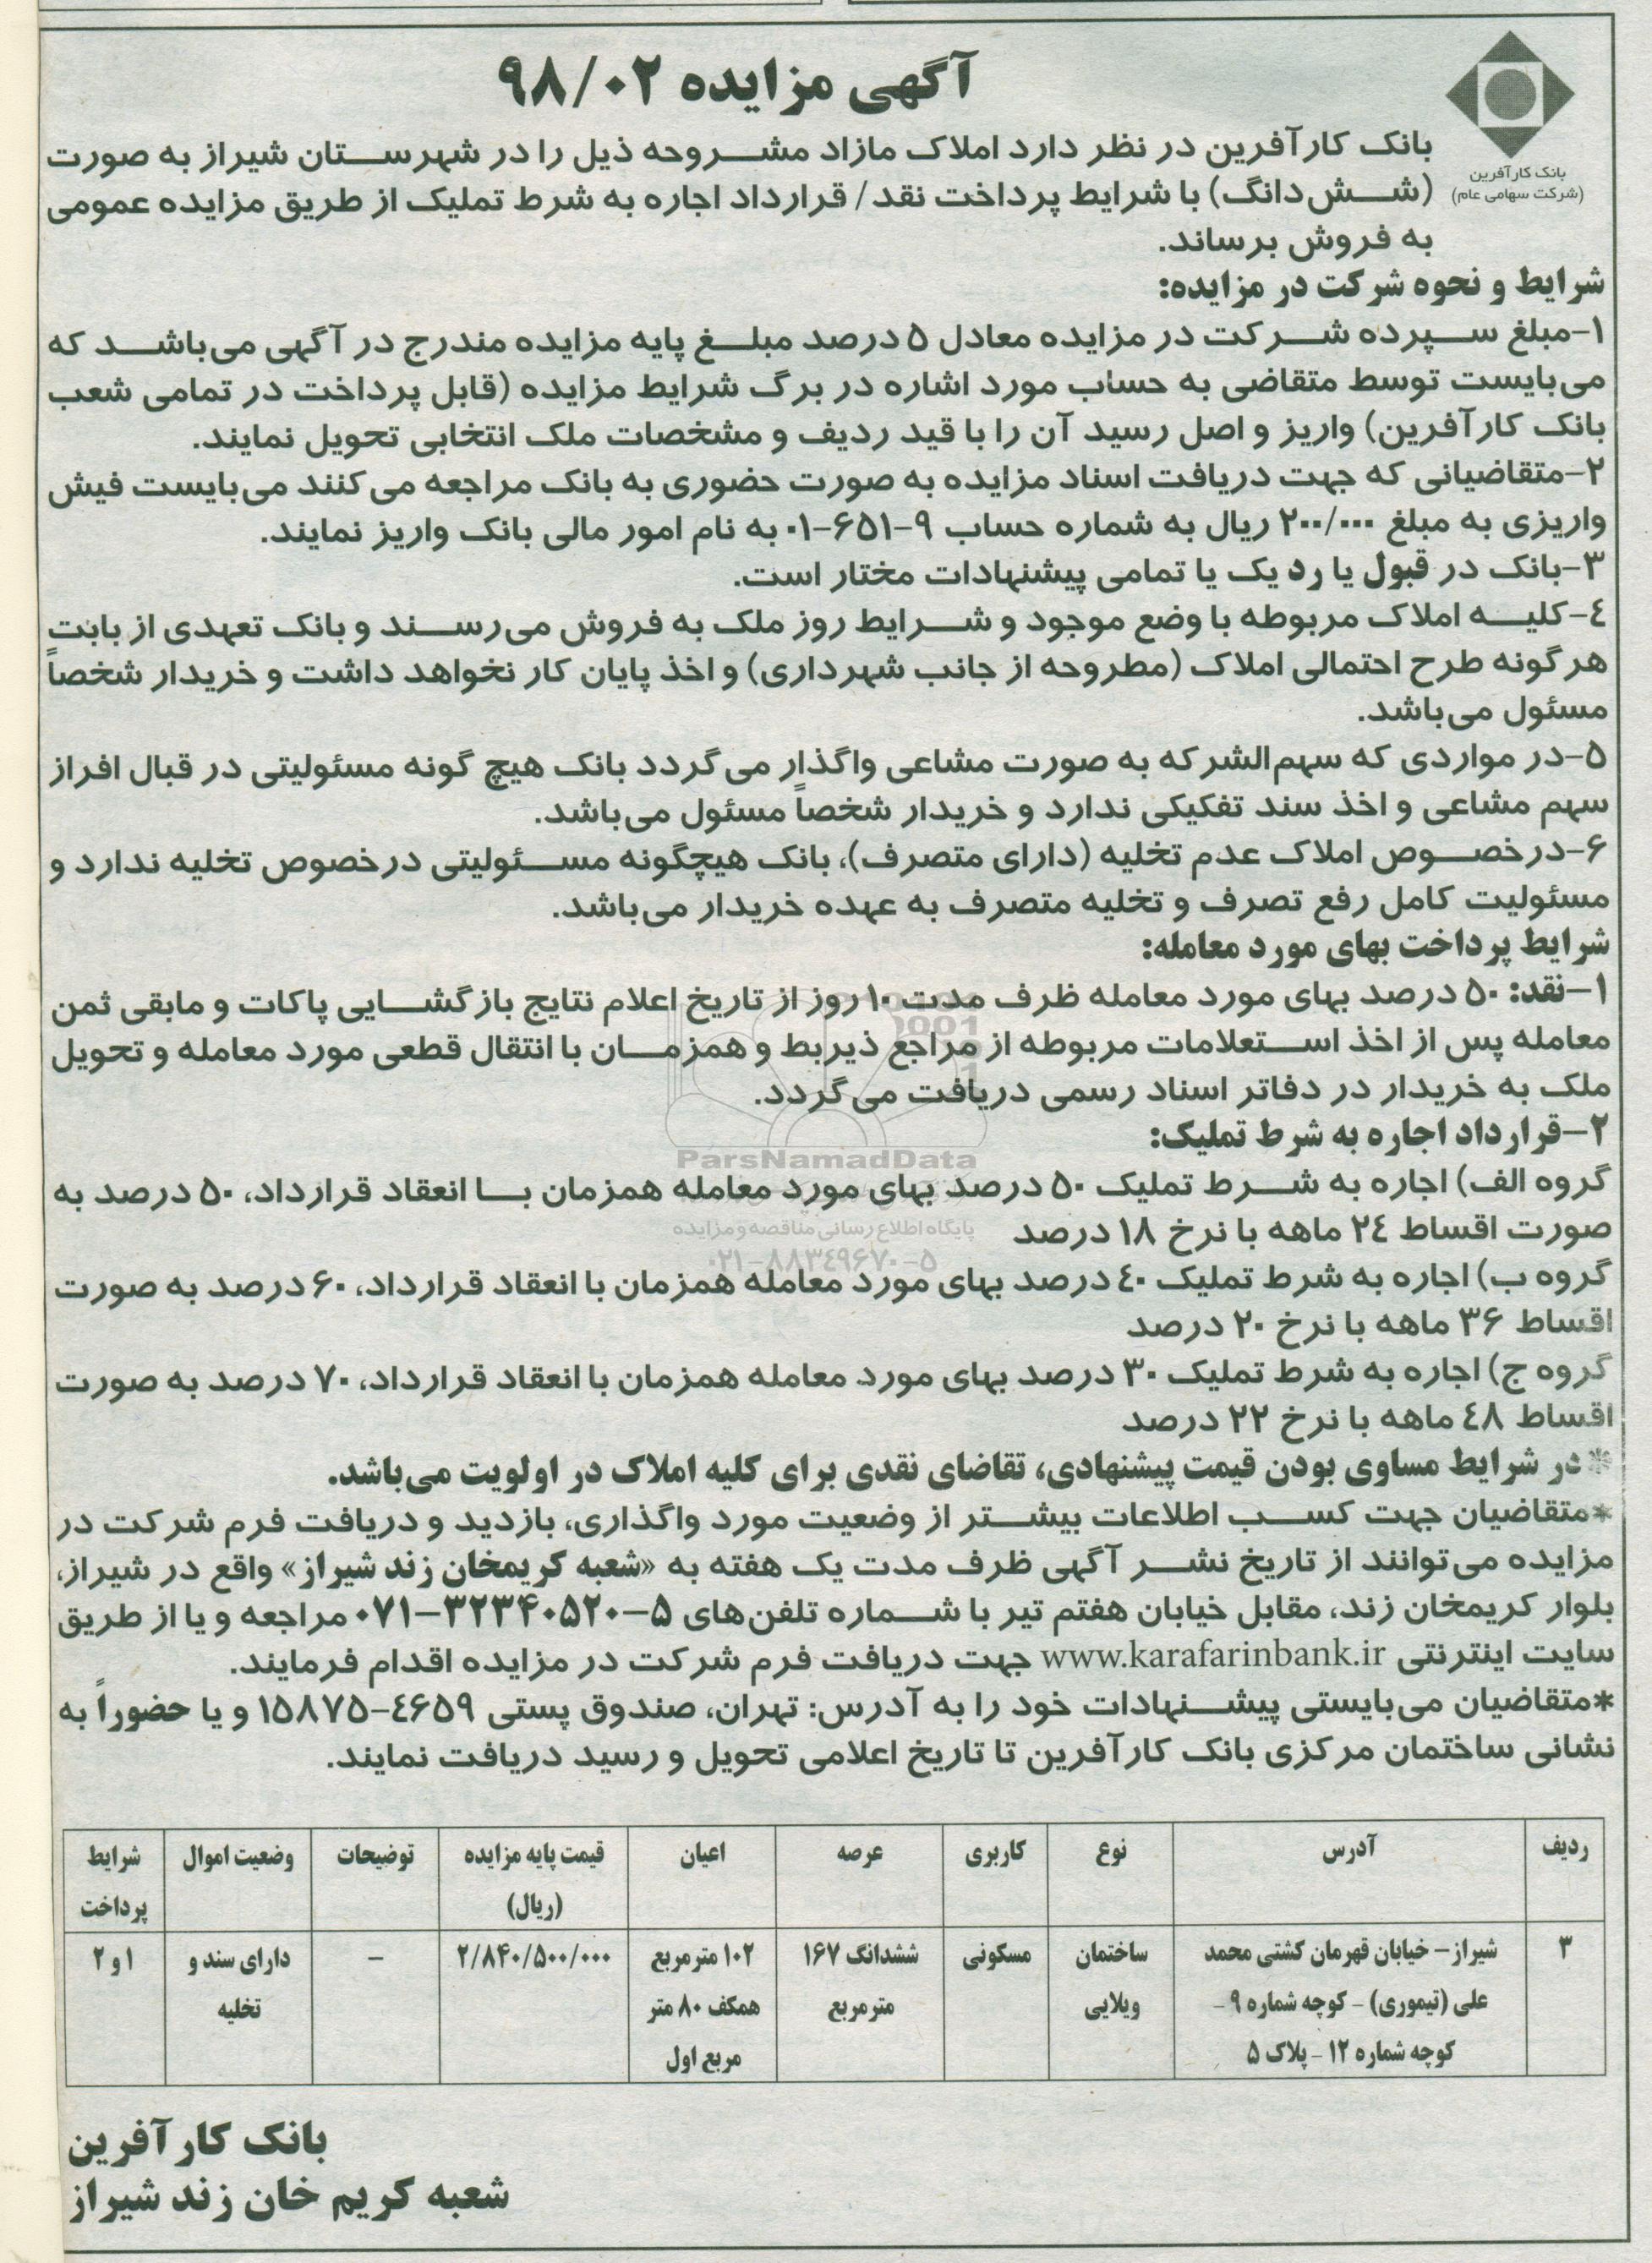 آگهی مزایده ۹۸/۰۲
بانک کارآفرین
(شرکت سهامی عام)
بانک کارآفرین در نظر دارد املاک مازاد مشروحه ذیل را در شهرستان شیراز به صورت
(شش‌دانگ) با شرایط پرداخت نقد/ قرارداد اجاره به شرط تملیک از طریق مزایده عمومی
به فروش برساند.
شرایط و نحوه شرکت در مزایده:
۱-مبلغ سپرده شرکت در مزایده معادل ۵ درصد مبلغ پایه مزایده مندرج در آگهی می‌باشد که
می‌بایست توسط متقاضی به حساب مورد اشاره در برگ شرایط مزایده (قابل پرداخت در تمامی شعب
بانک کارآفرین) واریز و اصل رسید آن را با قید ردیف و مشخصات ملک انتخابی تحویل نمایند.
۲-متقاضیانی که جهت دریافت اسناد مزایده به صورت حضوری به بانک مراجعه می‌کنند می‌بایست فیش
واریزی به مبلغ ۲۰۰/۰۰۰ ریال به شماره حساب ۹-۶۵۱-۰۱ به نام امور مالی بانک واریز نمایند.
۳-بانک در قبول یا رد یک یا تمامی پیشنهادات مختار است.
۴-کلیه املاک مربوطه با وضع موجود و شرایط روز ملک به فروش می‌رسند و بانک تعهدی از بابت
هرگونه طرح احتمالی املاک (مطروحه از جانب شهرداری) و اخذ پایان کار نخواهد داشت و خریدار شخصاً
مسئول می‌باشد.
۵-در مواردی که سهم‌الشرکه به صورت مشاعی واگذار می‌گردد بانک هیچ گونه مسئولیتی در قبال افراز
سهم مشاعی و اخذ سند تفکیکی ندارد و خریدار شخصاً مسئول می‌باشد.
۶-درخصوص املاک عدم تخلیه (دارای متصرف)، بانک هیچگونه مسئولیتی درخصوص تخلیه ندارد و
مسئولیت کامل رفع تصرف و تخلیه متصرف به عهده خریدار می‌باشد.
شرایط پرداخت بهای مورد معامله:
۱-نقد: ۵۰ درصد بهای مورد معامله ظرف مدت ۱۰ روز از تاریخ اعلام نتایج بازگشایی پاکات و مابقی ثمن
معامله پس از اخذ استعلامات مربوطه از مراجع ذیربط و همزمان با انتقال قطعی مورد معامله و تحویل
ملک به خریدار در دفاتر اسناد رسمی دریافت می‌گردد.
۲-قرارداد اجاره به شرط تملیک:
ParsNamadData
گروه الف) اجاره به شرط تملیک ۵۰ درصد بهای مورد معامله همزمان با انعقاد قرارداد، ۵۰ درصد به
صورت اقساط ۲۴ ماهه با نرخ ۱۸ درصد
پایگاه اطلاع رسانی مناقصه و مزایده
۰۲۱-۸۸۳۴۹۶۷۰-۵
گروه ب) اجاره به شرط تملیک ۴۰ درصد بهای مورد معامله همزمان با انعقاد قرارداد، ۶۰ درصد به صورت
اقساط ۳۶ ماهه با نرخ ۲۰ درصد
گروه ج) اجاره به شرط تملیک ۳۰ درصد بهای مورد معامله همزمان با انعقاد قرارداد، ۷۰ درصد به صورت
اقساط ۴۸ ماهه با نرخ ۲۲ درصد
*در شرایط مساوی بودن قیمت پیشنهادی، تقاضای نقدی برای کلیه املاک در اولویت می‌باشد.
*متقاضیان جهت کسب اطلاعات بیشتر از وضعیت مورد واگذاری، بازدید و دریافت فرم شرکت در
مزایده می‌توانند از تاریخ نشر آگهی ظرف مدت یک هفته به «شعبه کریمخان زند شیراز» واقع در شیراز،
بلوار کریمخان زند، مقابل خیابان هفتم تیر با شماره تلفن‌های ۵-۳۲۳۴۰۵۲۰-۰۷۱ مراجعه و یا از طریق
سایت اینترنتی www.karafarinbank.ir جهت دریافت فرم شرکت در مزایده اقدام فرمایند.
*متقاضیان می‌بایستی پیشنهادات خود را به آدرس: تهران، صندوق پستی ۴۶۵۹-۱۵۸۷۵ و یا حضوراً به
نشانی ساختمان مرکزی بانک کارآفرین تا تاریخ اعلامی تحویل و رسید دریافت نمایند.
ردیف آدرس نوع کاربری عرصه اعیان قیمت پایه مزایده توضیحات وضعیت اموال شرایط
(ریال) پرداخت
۳ شیراز- خیابان قهرمان کشتی محمد ساختمان مسکونی ششدانگ ۱۶۷ ۱۰۲ مترمربع ۲/۸۴۰/۵۰۰/۰۰۰ - دارای سند و ۱ و ۲
علی (تیموری) - کوچه شماره ۹ - ویلایی مترمربع همکف ۸۰ متر تخلیه
کوچه شماره ۱۲ - پلاک ۵ مربع اول
بانک کارآفرین
شعبه کریم خان زند شیراز